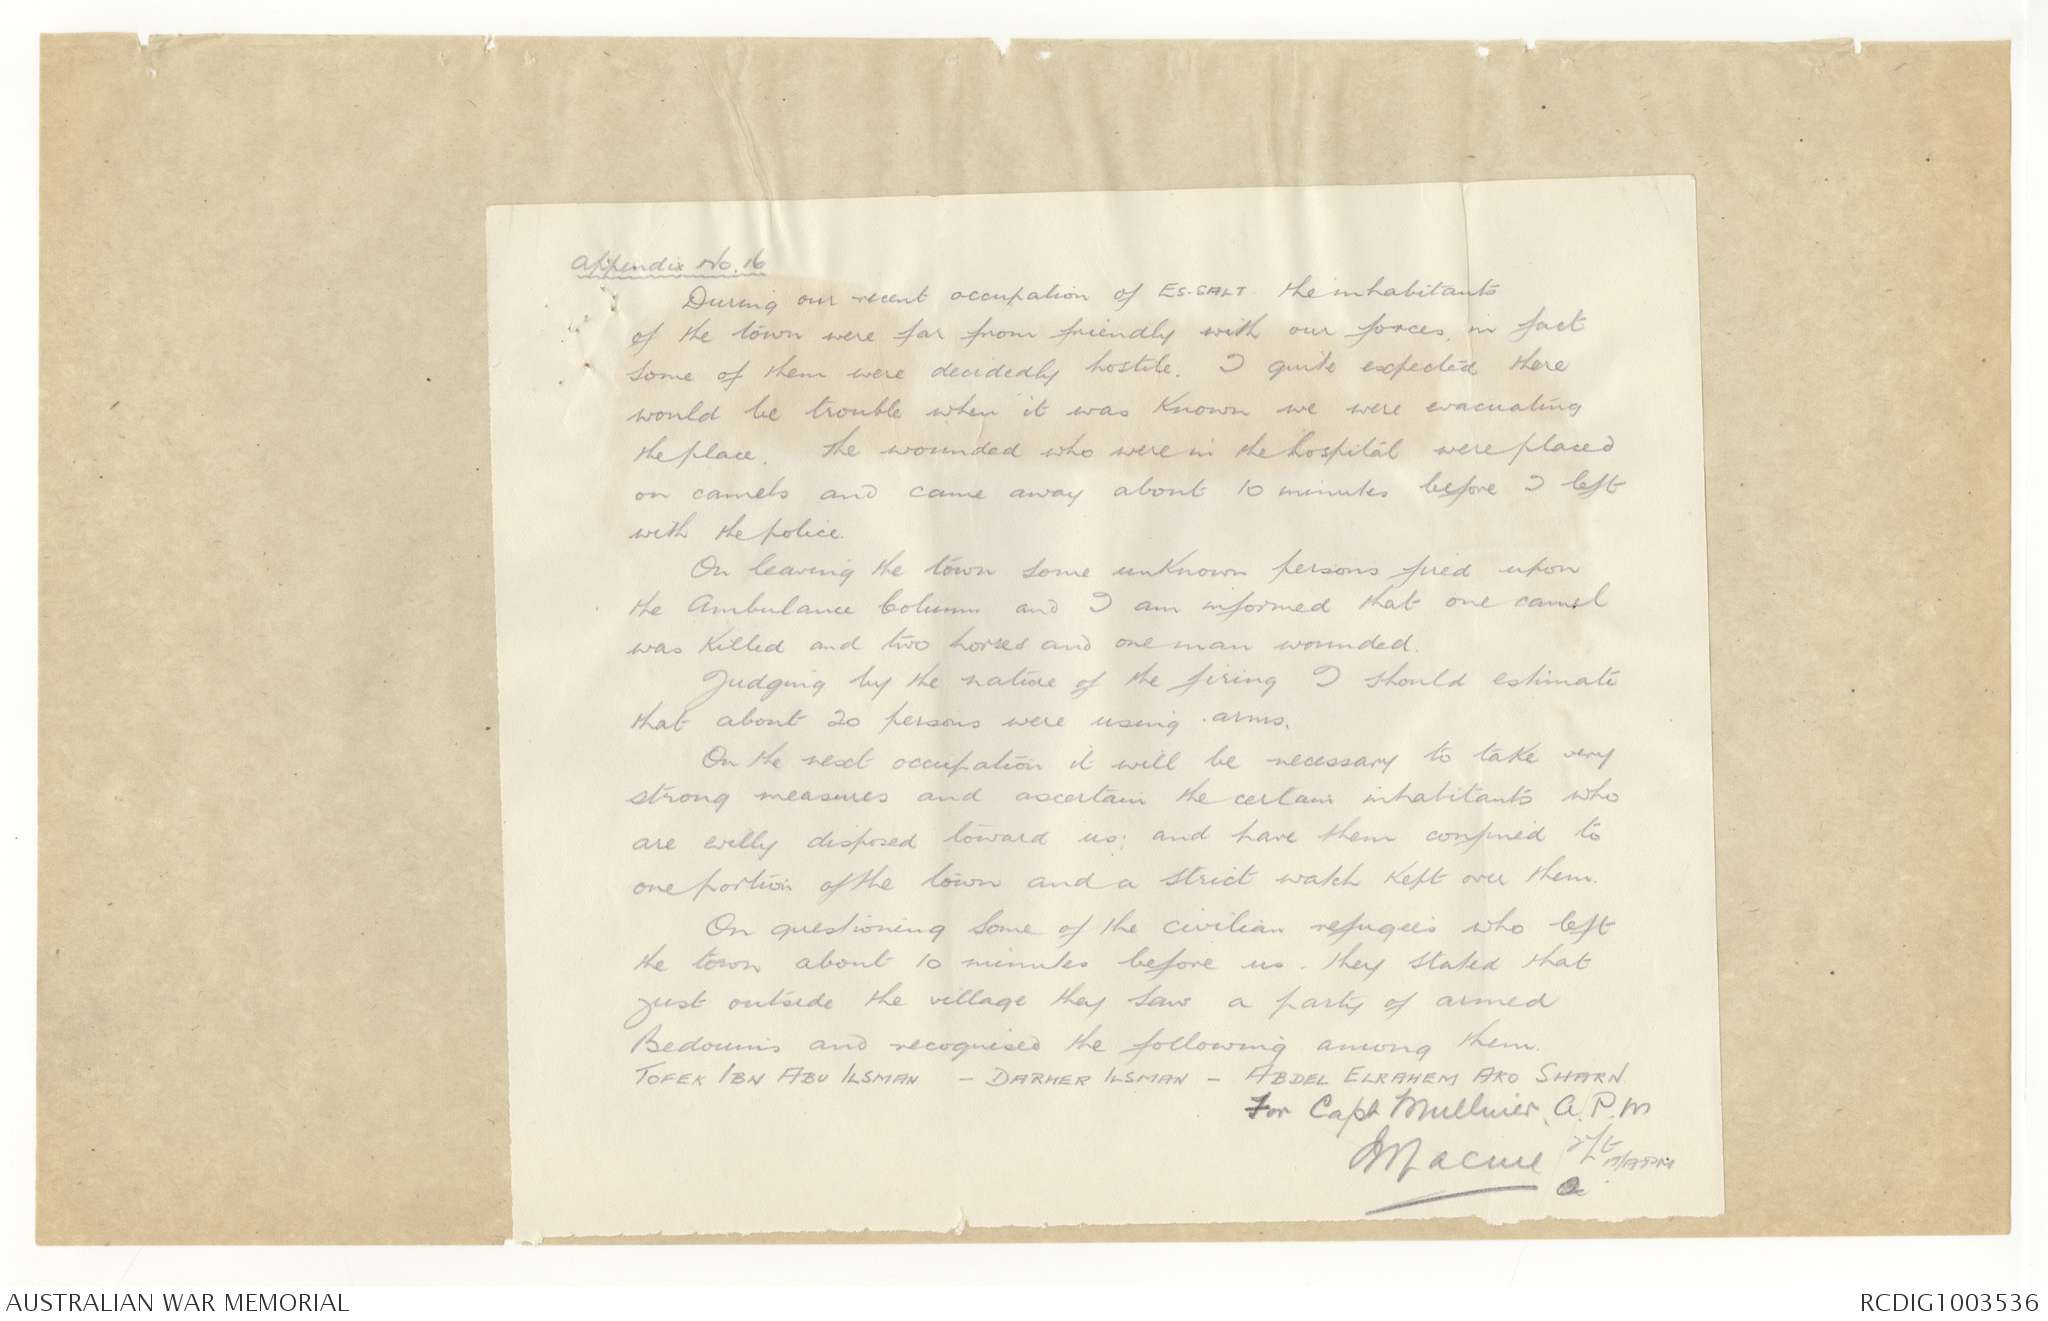 Appendix No. 16
During our recent occupation of ES-SALT the inhabitants
of the town were far from friendly with our forces, in fact
some of them were decidedly hostile. I quite expected there
would be trouble when it was known we were evacuating
the place. The wounded who were in the hospital were placed
on camels and came away about 10 minutes before I left
with the police.
On leaving the town some unknown persons fired upon
the Ambulance Column and I am informed that one camel
was killed and two horses and one man wounded.
Judging by the nature of the firing I should estimate
that about 20 persons were using arms.
On the next occupation it will be necessary to take very
strong measures and ascertain the certain inhabitants who
are evilly disposed toward us; and have them confined to
one portion of the town and a strict watch kept over them.
On questioning some of the civilian refugees who left
the town about 10 minutes before us. they stated that
just outside the village they saw a party of armed
Bedouins and recognised the following among them.
TOFEK IBN ABU ILSMAN - DARHER ILSMAN - ABDEL ELRAHEM AKO SHARN
For Capt A.P.M
AUSTRALIAN WAR MEMORIAL
RCDIG1003536